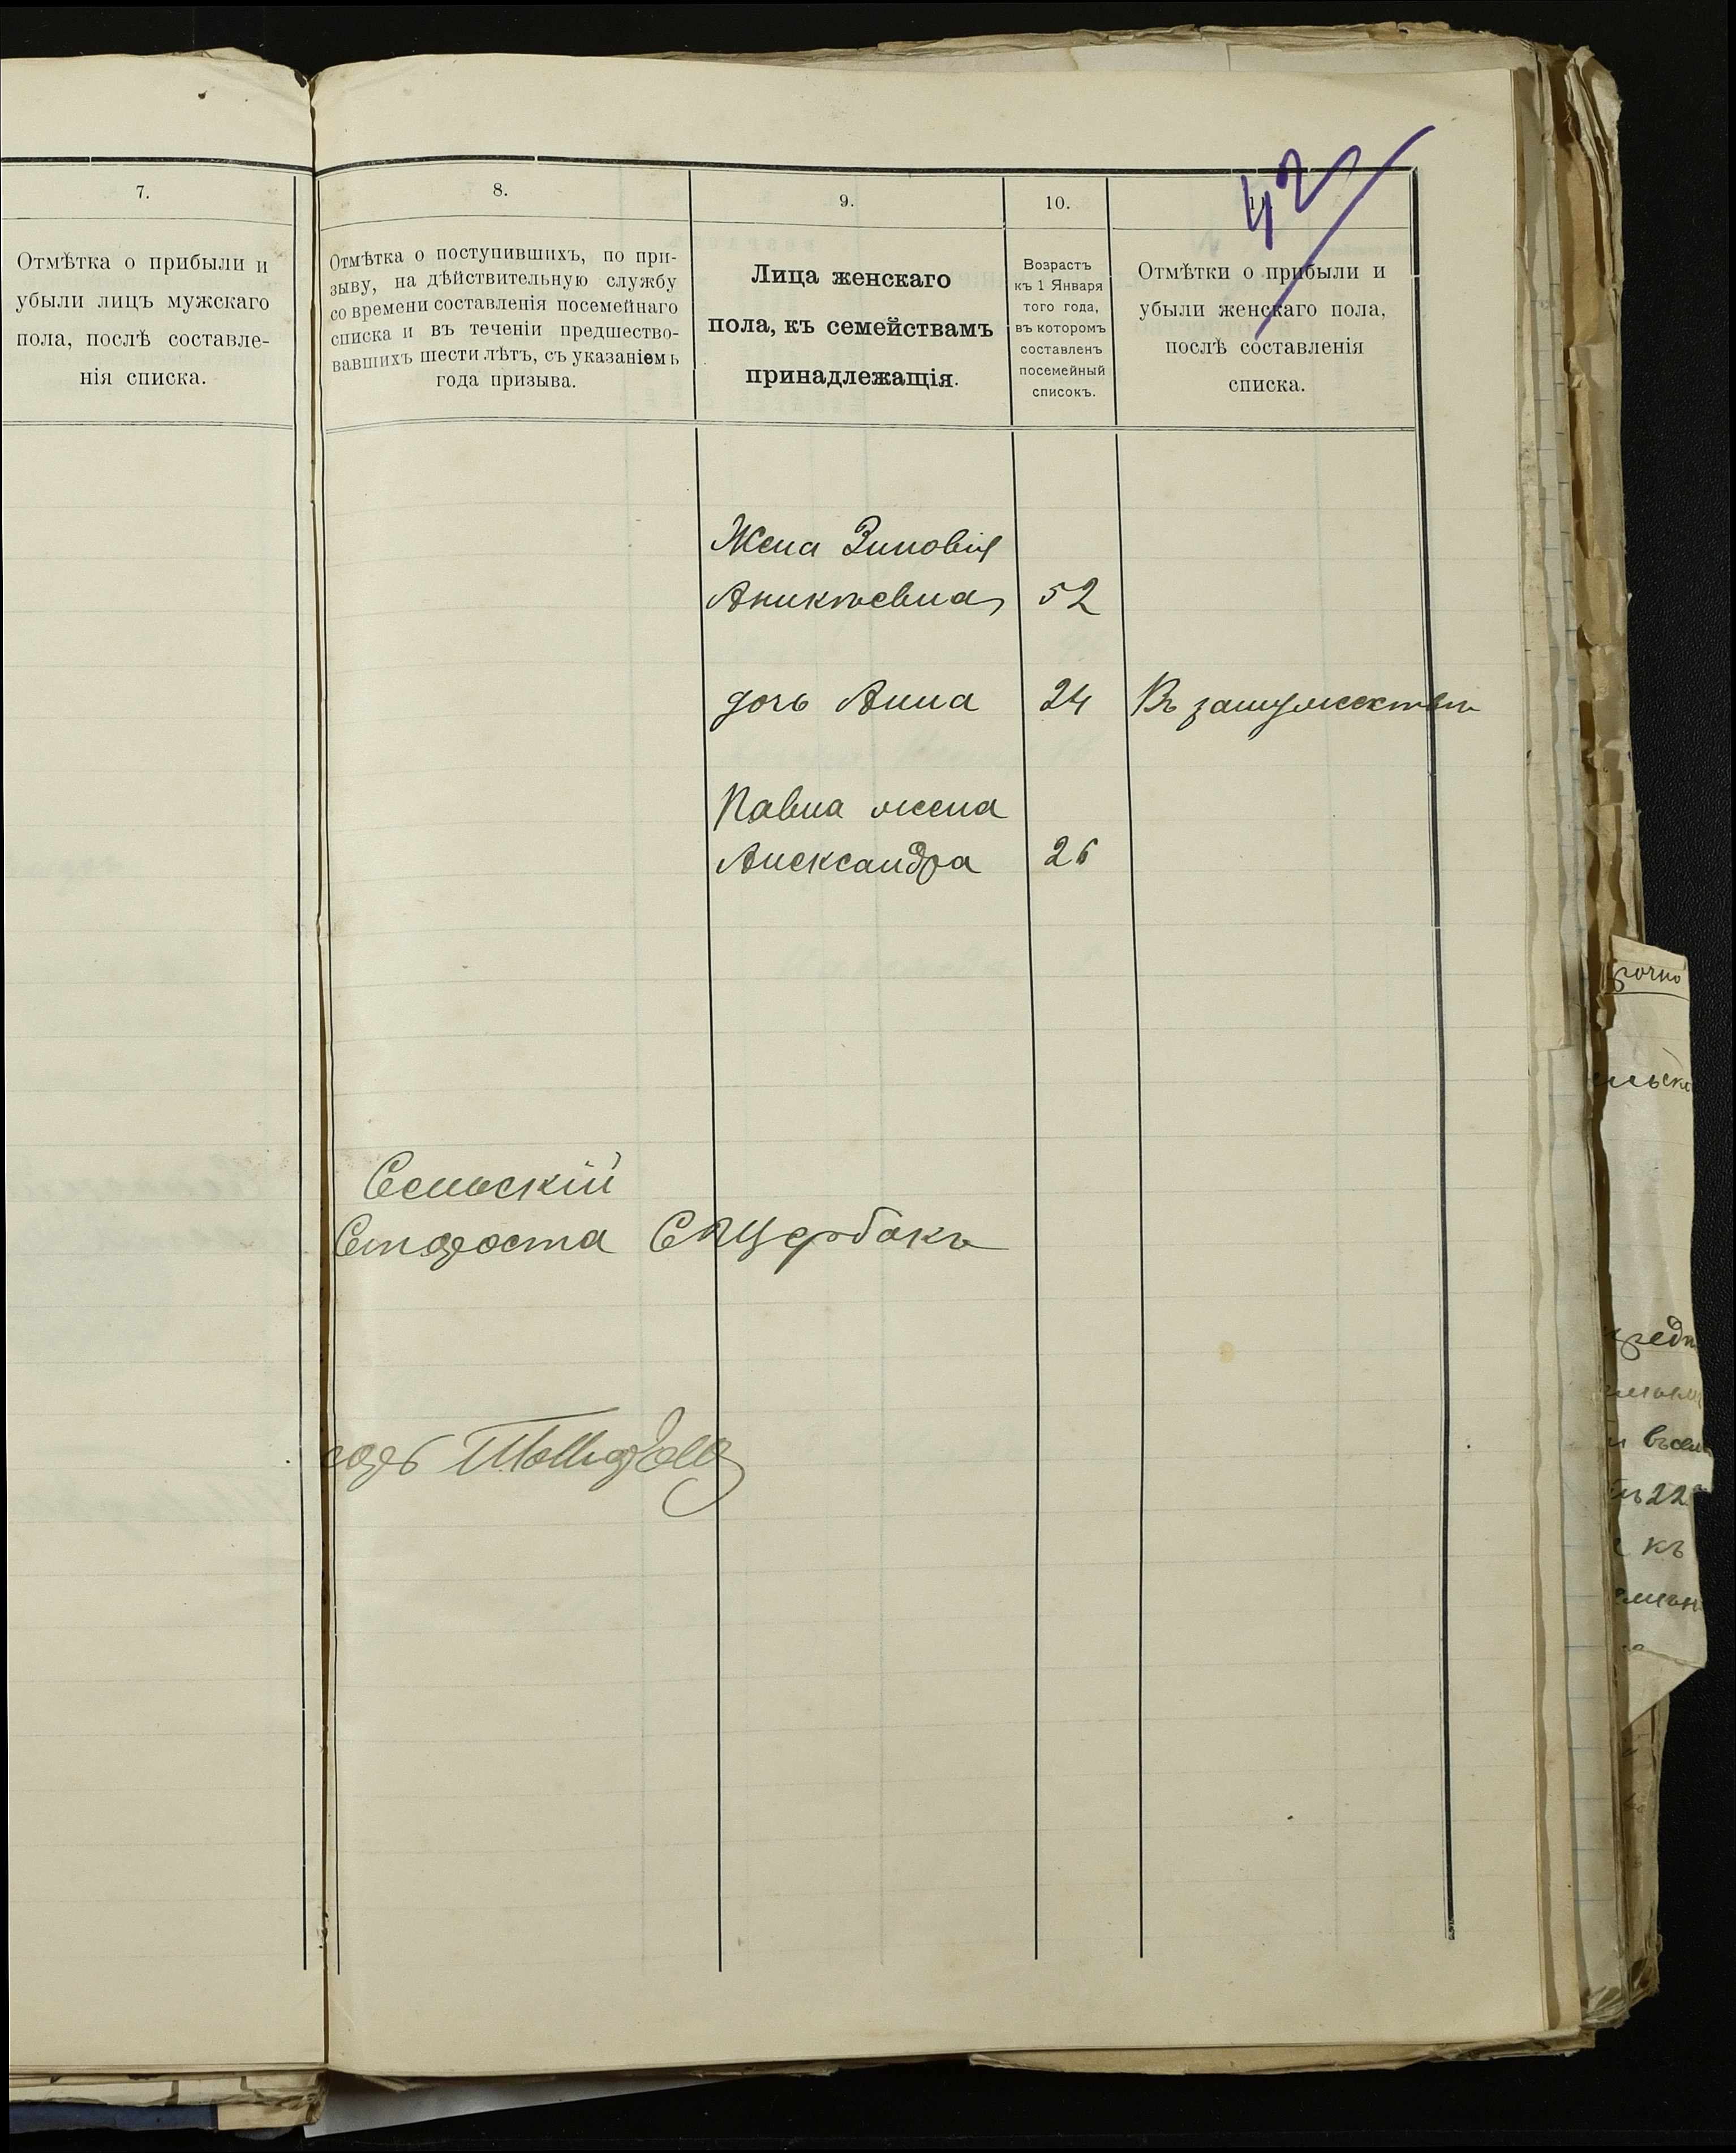 42
7.
Отмѣтка о прибыли и
убыли лицъ мужскаго
пола, послѣ составле-
нія списка.
8.
Отмѣтка о поступившихъ, по при-
зыву, на дѣйствительную службу
со времени составленія посемейнаго
списка и въ теченіи предшество-
вавшихъ шести лѣтъ, съ указаніемъ
года призыва.
9.
Лица женскаго
пола, къ семействамъ
принадлежащія.
10.
Возрастъ
къ 1 Января
того года,
въ которомъ
составленъ
посемейный
списокъ.
11.
Отмѣтки о прибыли и
убыли женскаго пола,
послѣ составленія
списка.
Жена Зиновія
Аникѣевна 52
дочь Анна 24 Въ замужествѣ
Павла жена
Александра 26
Сельскій
Староста С Щербакъ
рочно
къ